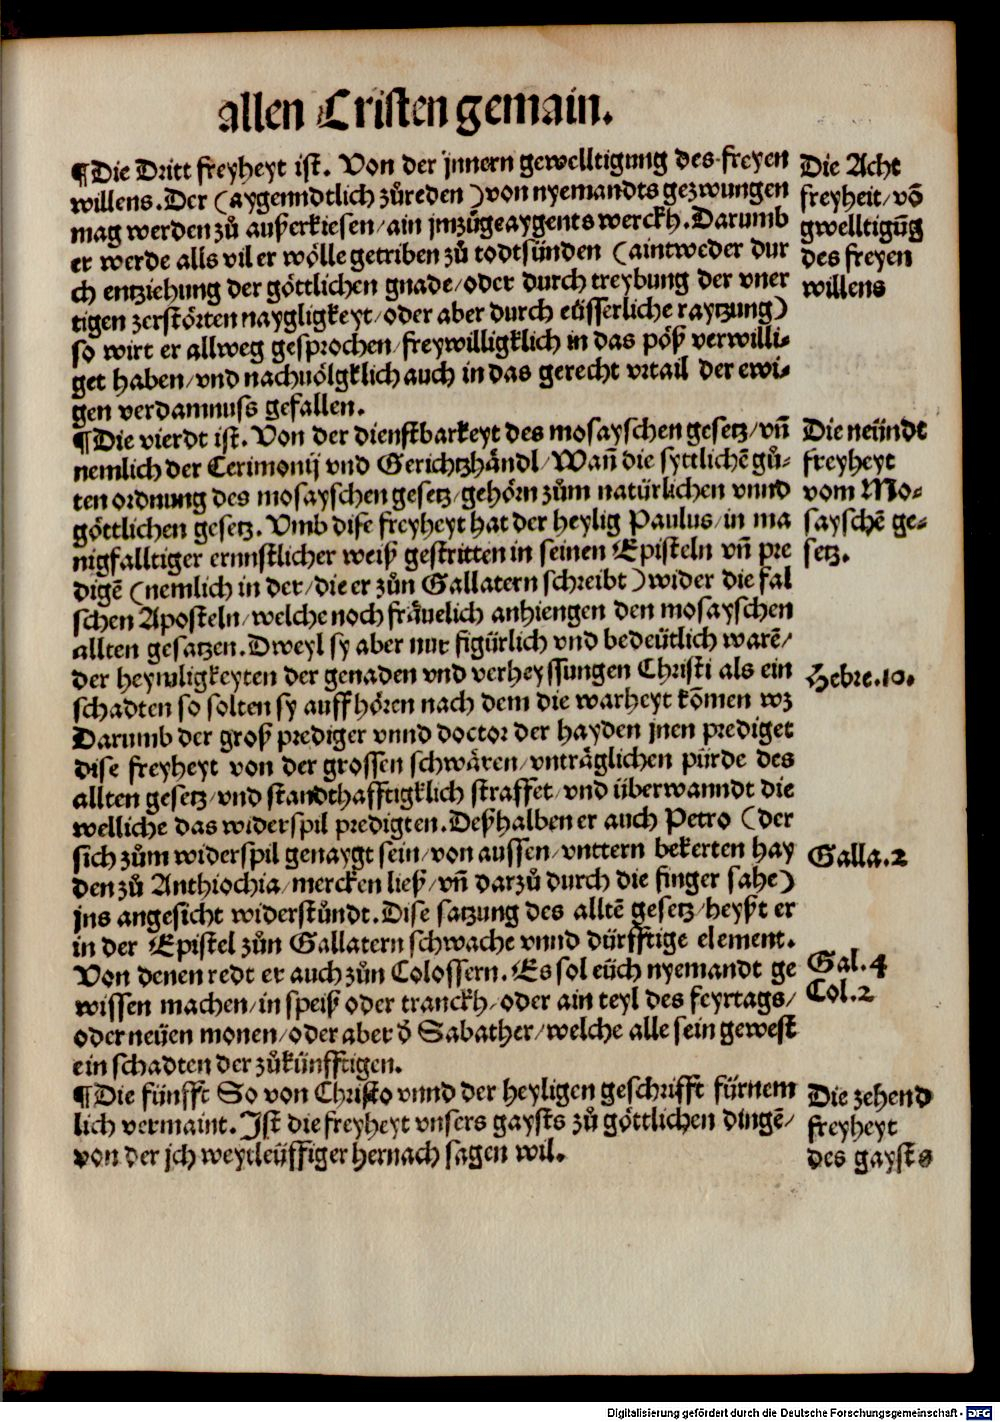 allen Cristen gemain.
¶Die Dritt freyheyt ist. Von der jnnern gewelltigung des freyen
willens. Der (aygenndtlich zůreden) von nyemandts gezwungen
mag werden zů außerkiesen/ain jmzůgeaygents werckh. Darumb
er werde alls vil er wölle getriben zů todtsünden (aintweder dur
ch entziehung der göttlichen gnade/oder durch treybung der vner
tigen zerstörten naygligkeyt/oder aber durch eüsserliche raytzung)
so wirt er allweg gesprochen/freywilligklich in das pöß verwilli⸗
get haben/vnd nachuölgklich auch in das gerecht vrtail der ewi⸗
gen verdamnuss gefallen.
¶Die vierdt ist. Von der dienstbarkeyt des mosayschen gesetz/vñ
nemlich der Cerimonij vnd Gerichtzhändl/Wañ die syttlichẽ gů⸗
ten ordnung des mosayschen gesetz/gehörn zům natürlichen vnnd
göttlichen gesetz. Vmb dise freyheyt hat der heylig Paulus/in ma
nigfalltiger ernnstlicher weiß gestritten in seinen Episteln vñ pre
digẽ (nemlich in der/die er zůn Gallatern schreibt) wider die fal
schen Aposteln/welche noch fräuelich anhiengen den mosayschen
allten gesatzen. Dweyl sy aber nur figürlich vnd bedeütlich warẽ/
der heymligkeyten der genaden vnd verheyssungen Christi als ein
schadten so solten sy auffhören nach dem die warheyt kõmen wz
Darumb der groß prediger vnnd doctor der hayden jnen prediget
dise freyheyt von der grossen schwären/vnträglichen pürde des
allten gesetz/vnd standthafftigklich straffet/vnd überwanndt die
welliche das widerspil predigten. Deßhalben er auch Petro (der
sich zům widerspil genaygt sein/von aussen/vnttern bekerten hay
den zů Anthiochia/mercken ließ/vñ darzů durch die finger sahe)
jns angesicht widerstůndt. Dise satzung des alltẽ gesetz/heyßt er
in der Epistel zůn Gallatern schwache vnnd dürfftige element.
Von denen redt er auch zůn Colossern. Es sol eüch nyemandt ge
wissen machen/in speiß oder tranckh/oder ain teyl des feyrtags/
oder neüen monen/oder aber d̕ Sabather/welche alle sein gewest
ein schadten der zůkünfftigen.
¶Die fünfft So von Christo vnnd der heyligen geschrifft fürnem
lich vermaint. Jst die freyheyt vnsers gaysts zů göttlichen dingẽ/
von der jch weytleüffiger hernach sagen wil.
Die Acht
freyheit/võ
gwelltigũg
des freyen
willens
Die neündt
freyheyt
vom Mo⸗
sayschẽ ge⸗
setz.
Hebre.10.
Galla.2
Gal.4
Col.2
Die zehend
freyheyt
des gaysts
Digitalisierung gefördert durch die Deutsche Forschungsgemeinschaft - DFG